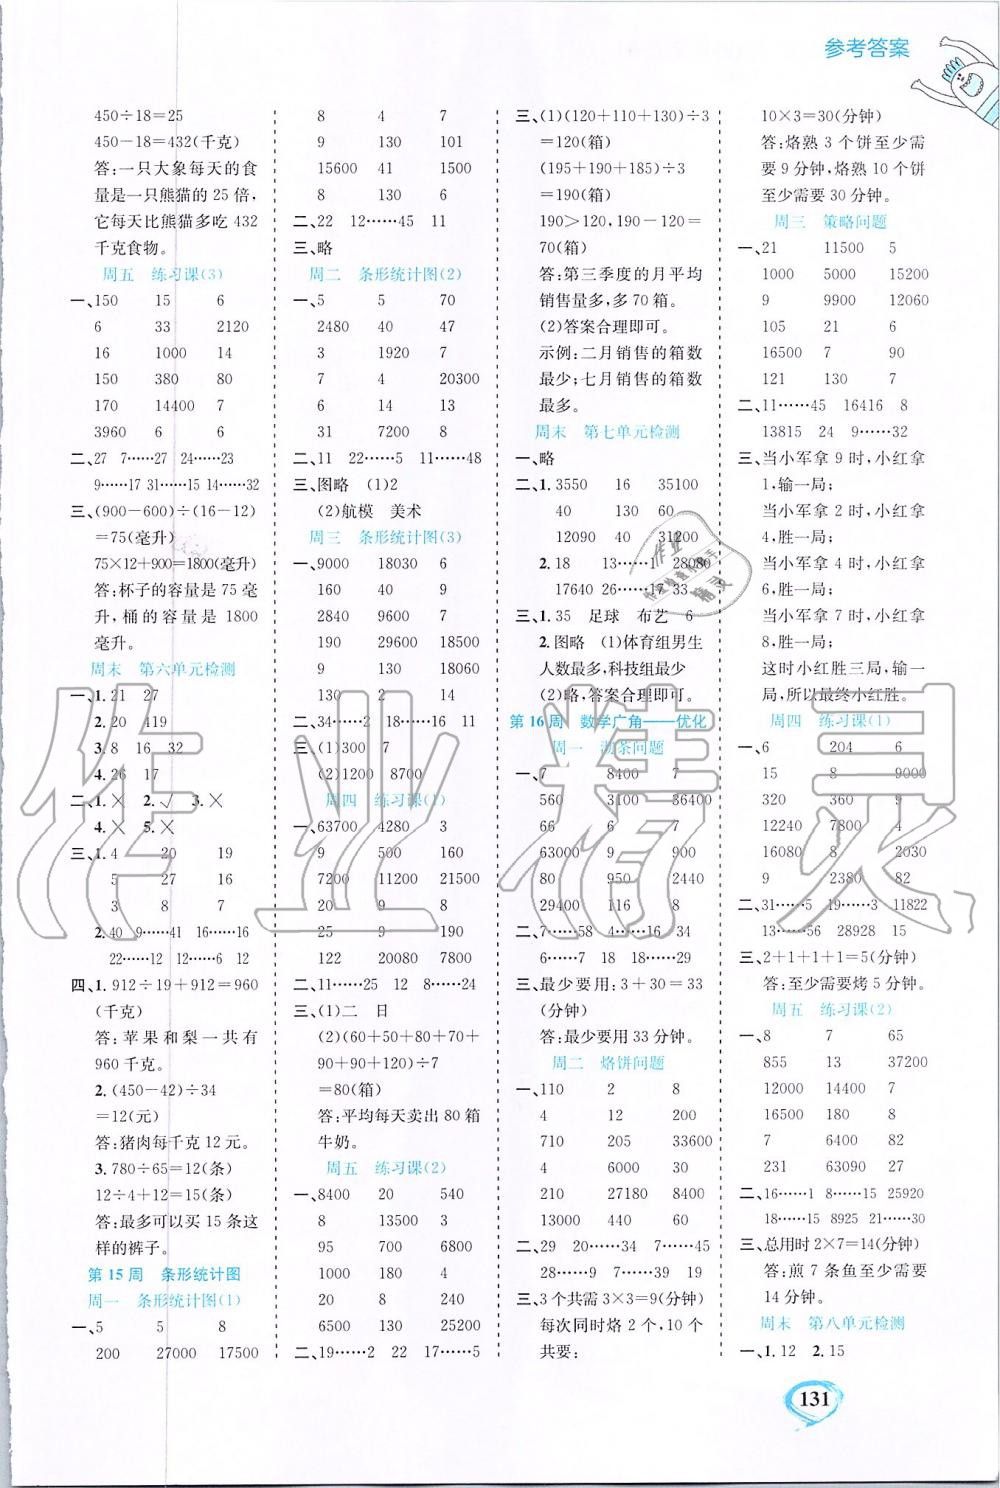 参考答案
450÷18=25
450-18=432(千克)
答:一只大象每天的食
量是一只熊猫的25倍,
它每天比熊猫多吃432
千克食物。
周五 练习课(3)
一、150 15 6
6 33 2120
16 1000 14
150 380 80
170 14400 7
3960 6 6
二、27 7……27 24……23
9……17 31……15 14……32
三、(900-600)÷(16-12)
=75(毫升)
75×12+900=1800(毫升)
答:杯子的容量是75毫
升,桶的容量是1800
毫升。
周末 第六单元检测
一、1.21 27
2.20 419
3.8 16 32
4.26 17
二、1.× 2.√ 3.×
4.× 5.×
三、1.4 20 19
5 27 16
3 8 7
2.40 9……41 16……16
22……12 12……6 12
四、1.912÷19+912=960
(千克)
答:苹果和梨一共有
960千克。
2.(450-42)÷34
=12(元)
答:猪肉每千克12元。
3.780÷65=12(条)
12÷4+12=15(条)
答:最多可以买15条这
样的裤子。
第15周 条形统计图
周一 条形统计图(1)
一、5 5 8
200 27000 17500
8 4 7
9 130 101
15600 41 1500
8 130 6
二、22 12……45 11
三、略
周二 条形统计图(2)
一、5 5 70
2480 40 47
3 1920 7
7 4 20300
6 14 13
31 7200 8
二、11 22……5 11……48
三、图略 (1)2
(2)航模 美术
周三 条形统计图(3)
一、9000 18030 6
160 40 9
2840 9600 7
190 29600 18500
9 130 18060
130 2 14
二、34……2 18……16 11
三、(1)300 7
(2)1200 8700
周四 练习课(1)
一、63700 4280 3
9 500 160
7200 11200 21500
20 9 8
25 9 190
122 20080 7800
二、11……25 12 8……24
三、(1)二 日
(2)(60+50+80+70+
90+90+120)÷7
=80(箱)
答:平均每天卖出80箱
牛奶。
周五 练习课(2)
一、8400 20 540
8 13500 3
95 700 6800
1000 180 4
20 8 240
6500 130 25200
二、19……2 22 17……5
三、(1)(120+110+130)÷3
=120(箱)
(195+190+185)÷3
=190(箱)
190>120,190-120=
70(箱)
答:第三季度的月平均
销售量多,多70箱。
(2)答案合理即可。
示例:二月销售的箱数
最少;七月销售的箱数
最多。
周末 第七单元检测
一、略
二、1.3550 16 35100
40 130 60
12090 40 31200
2.18 13……1 28080
17640 26……17 33
三、1.35 足球 布艺 6
2.图略 (1)体育组男生
人数最多,科技组最少
(2)略,答案合理即可。
第16周 数学广角——优化
周一 沏茶问题
一、7 8400 7
560 3100 36400
66 6 7
63000 9 900
80 950 2440
29400 116 8
二、7……58 4……16 34
6……7 18 18……29
三、最少要用:3+30=33
(分钟)
答:最少要用33分钟。
周二 烙饼问题
一、110 2 8
4 12 200
710 205 33600
4 6000 30
210 27180 8400
13000 440 60
二、29 20……34 7……45
28……9 9……39 19
三、3个共需3×3=9(分钟)
每次同时烙2个,10个
共要:
10×3=30(分钟)
答:烙熟3个饼至少需
要9分钟,烙熟10个饼
至少需要30分钟。
周三 策略问题
一、21 11500 5
1000 5000 15200
9 9900 12060
105 21 6
16500 7 90
121 130 7
二、11……45 16416 8
13815 24 9……32
三、当小军拿9时,小红拿
1,输一局;
当小军拿2时,小红拿
4,胜一局;
当小军拿4时,小红拿
6,胜一局;
当小军拿7时,小红拿
8,胜一局;
这时小红胜三局,输一
局,所以最终小红胜。
周四 练习课(1)
一、6 204 6
15 8 9000
320 360 9
12240 7800 4
16080 8 2030
9 2380 82
二、31……5 19……3 11822
13……56 28928 15
三、2+1+1+1=5(分钟)
答:至少需要烤5分钟。
周五 练习课(2)
一、8 7 65
855 13 37200
12000 14400 7
16500 180 8
7 6400 82
231 63090 27
二、16……1 8……15 25920
18……15 8925 21……30
三、总用时2×7=14(分钟)
答:煎7条鱼至少需要
14分钟。
周末 第八单元检测
一、1.12 2.15
131
作业精灵